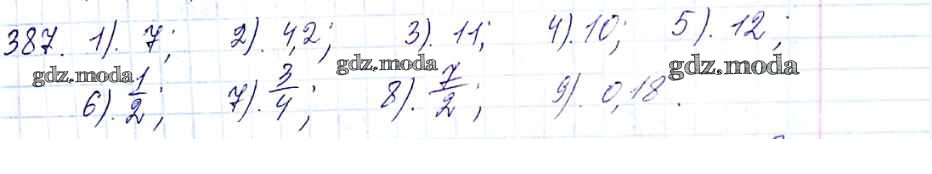 387. 1). 7; 2). 4,2; 3). 11; 4). 10; 5). 12;
gdz.moda gdz.moda gdz.moda
6). 1/2; 7). 3/4; 8). 7/2; 9). 0,18.